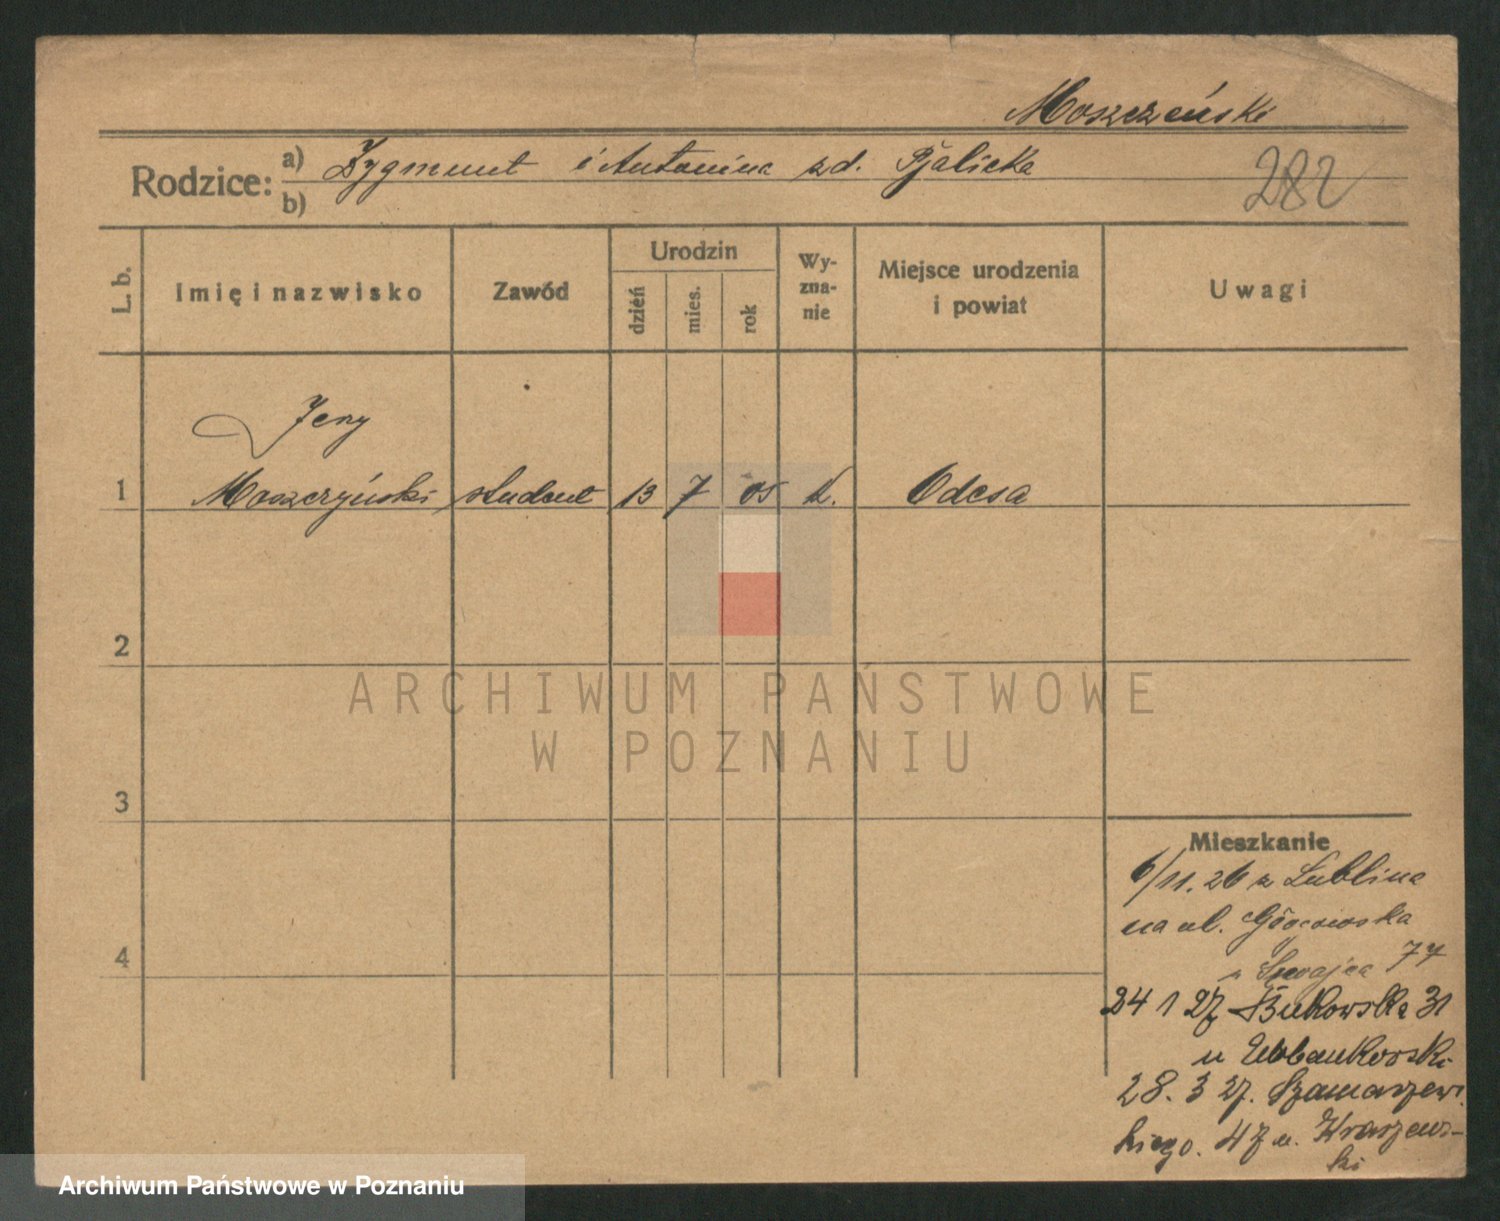 Moszczeński
Rodzice:
a) Zygmunt i Antonina zd.
b)
282
L. b.
Imię i nazwisko
Zawód
Urodzin
dzień
mies.
rok
Wy-
zna-
nie
Miejsce urodzenia
i powiat
Uwagi
Jerzy
1 Moszczyński student 13 7 05 k. Odesa
2
3
4
Mieszkanie
6/11. 26 z Lublina
na ul.
77
24 1 27 Bukowska 31
u Urbankowski
28. 3 27. Szamarzew
kiego. 47 u.
ki
ARCHIWUM PAŃSTWOWE
W POZNANIU
Archiwum Państwowe w Poznaniu